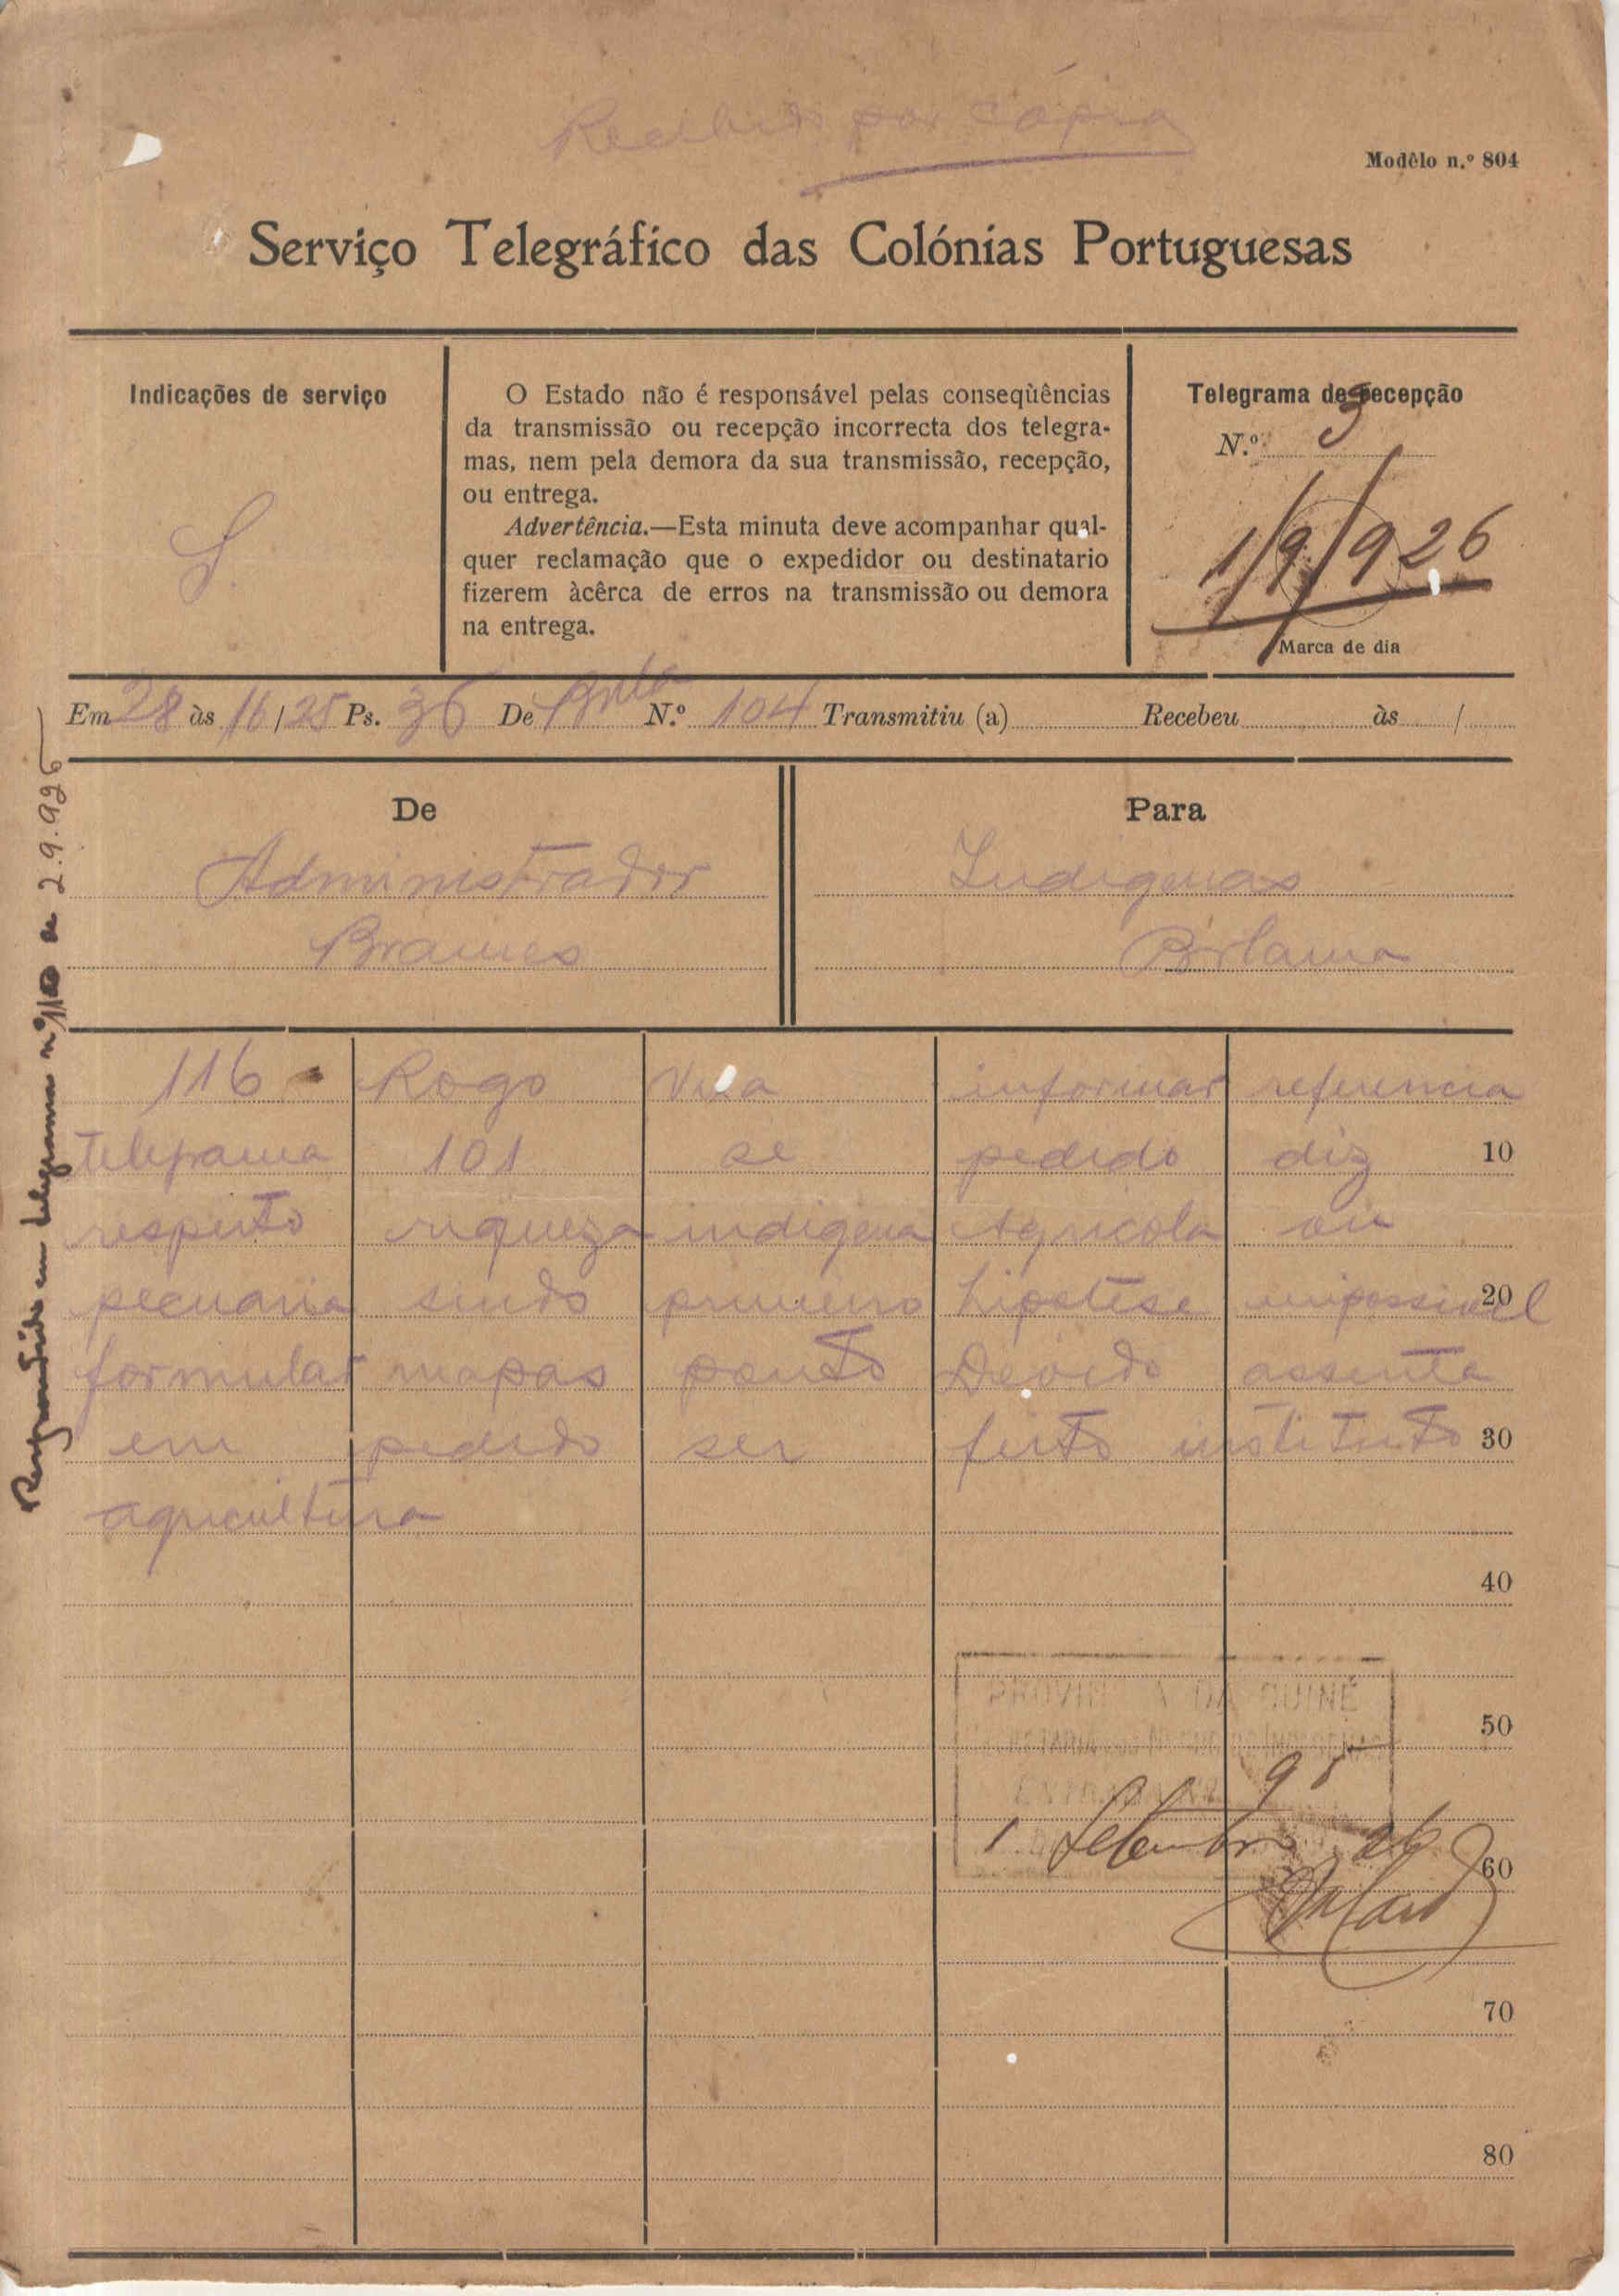 Recebido por cópia
Modêlo n.º 804
Serviço Telegráfico das Colónias Portuguesas
Indicações de serviço
S.
O Estado não é responsável pelas conseqùências
da transmissão ou recepção incorrecta dos telegra-
mas, nem pela demora da sua transmissão, recepção,
ou entrega.
Advertência.—Esta minuta deve acompanhar qual-
quer reclamação que o expedidor ou destinatario
fizerem àcêrca de erros na transmissão ou demora
na entrega.
Telegrama de recepção
N.º 3
1/9/926
Marca de dia
Em 28 às 16/25 Ps. 36 De N.º 104 Transmitiu (a) Recebeu às /
De
Administrador
Brames
Para
Indigenas
Bolama
116 Rogo Vexa informar referencia
telegrama 101 se pedido diz 10
respeito riqueza indigena Agricola ou
pecuaria sendo primeiro hipotese impossivel 20
formular mapas ponto Devido assenta
em pedido ser feito instituto 30
agricultura
40
50
60
70
80
PROVINCIA DA GUINÉ
ENTRADA
95
1 Setembro 26
Respondido em telegrama nº de 2.9.926